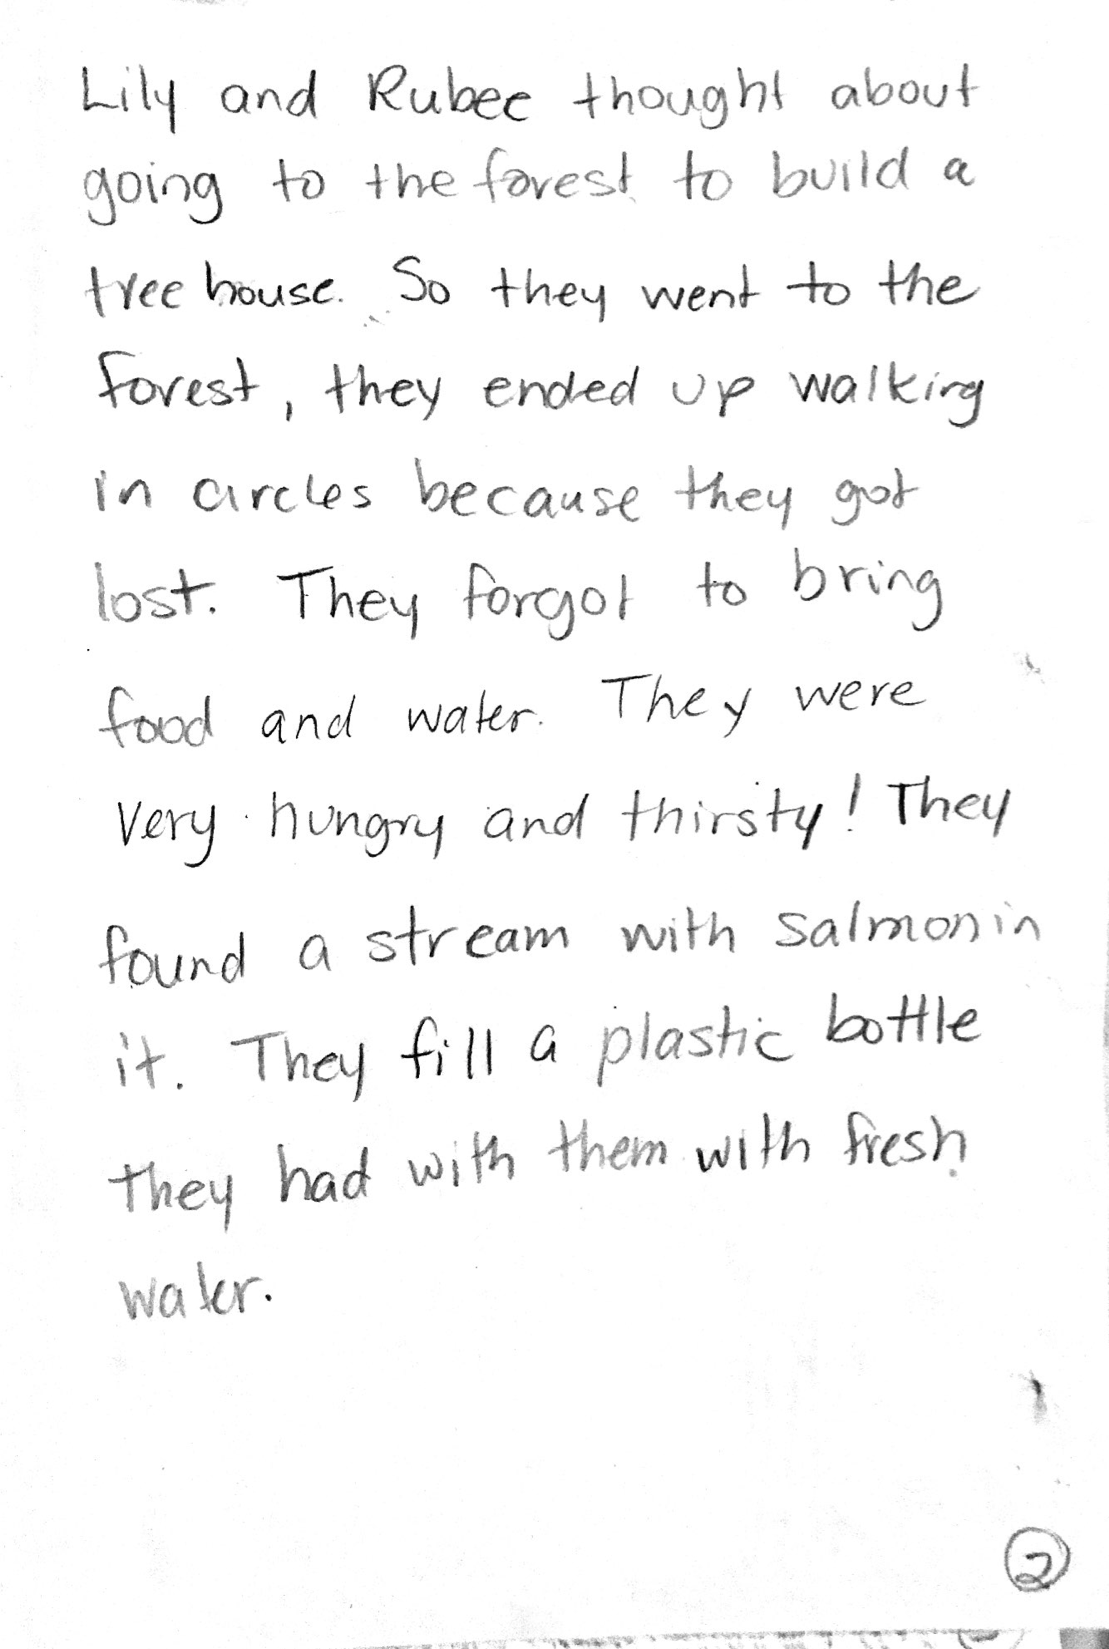 Lily and Rubee thought about
going to the forest to build a
tree house. So they went to the
forest, they ended up walking
in circles because they got
lost. They forgot to bring
food and water. They were
very hungry and thirsty! They
found a stream with salmon in
it. They fill a plastic bottle
they had with them with fresh
water.
2